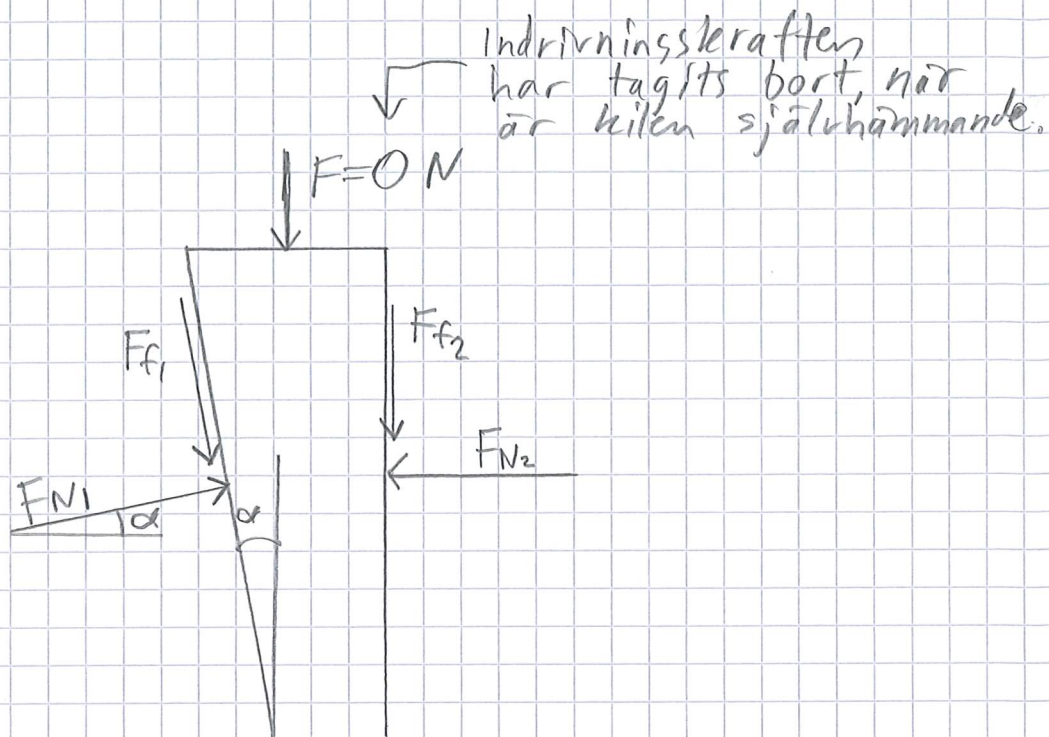 Indrivningskraften
har tagits bort, när
är kilen självhämmande.
F=0 N
Ff1
Ff2
FN2
FN1
α
α